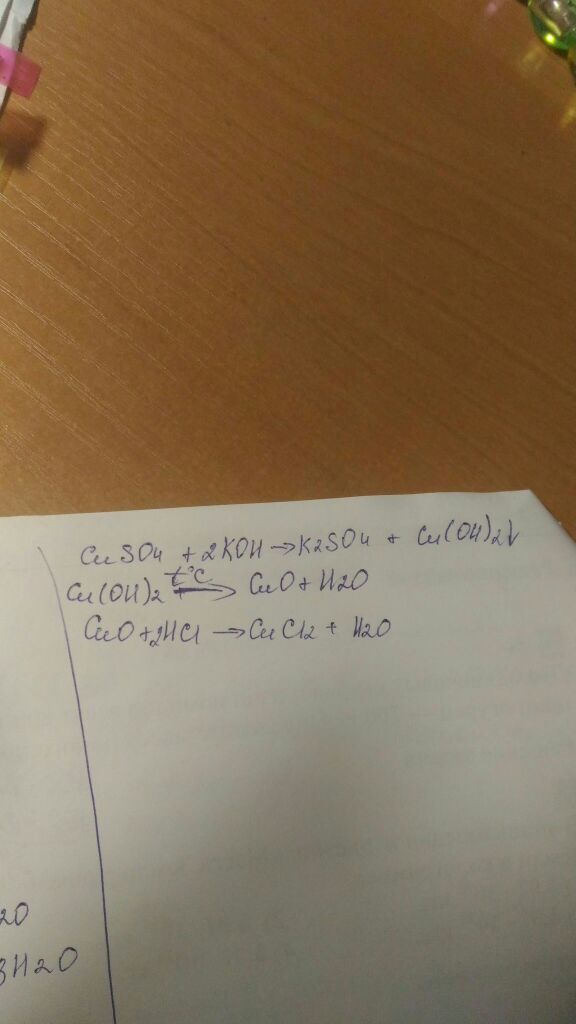 CuSO4 + 2KOH → K2SO4 + Cu(OH)2↓
Cu(OH)2 t°C → CuO + H2O
CuO + 2HCl → CuCl2 + H2O
2O
3H2O